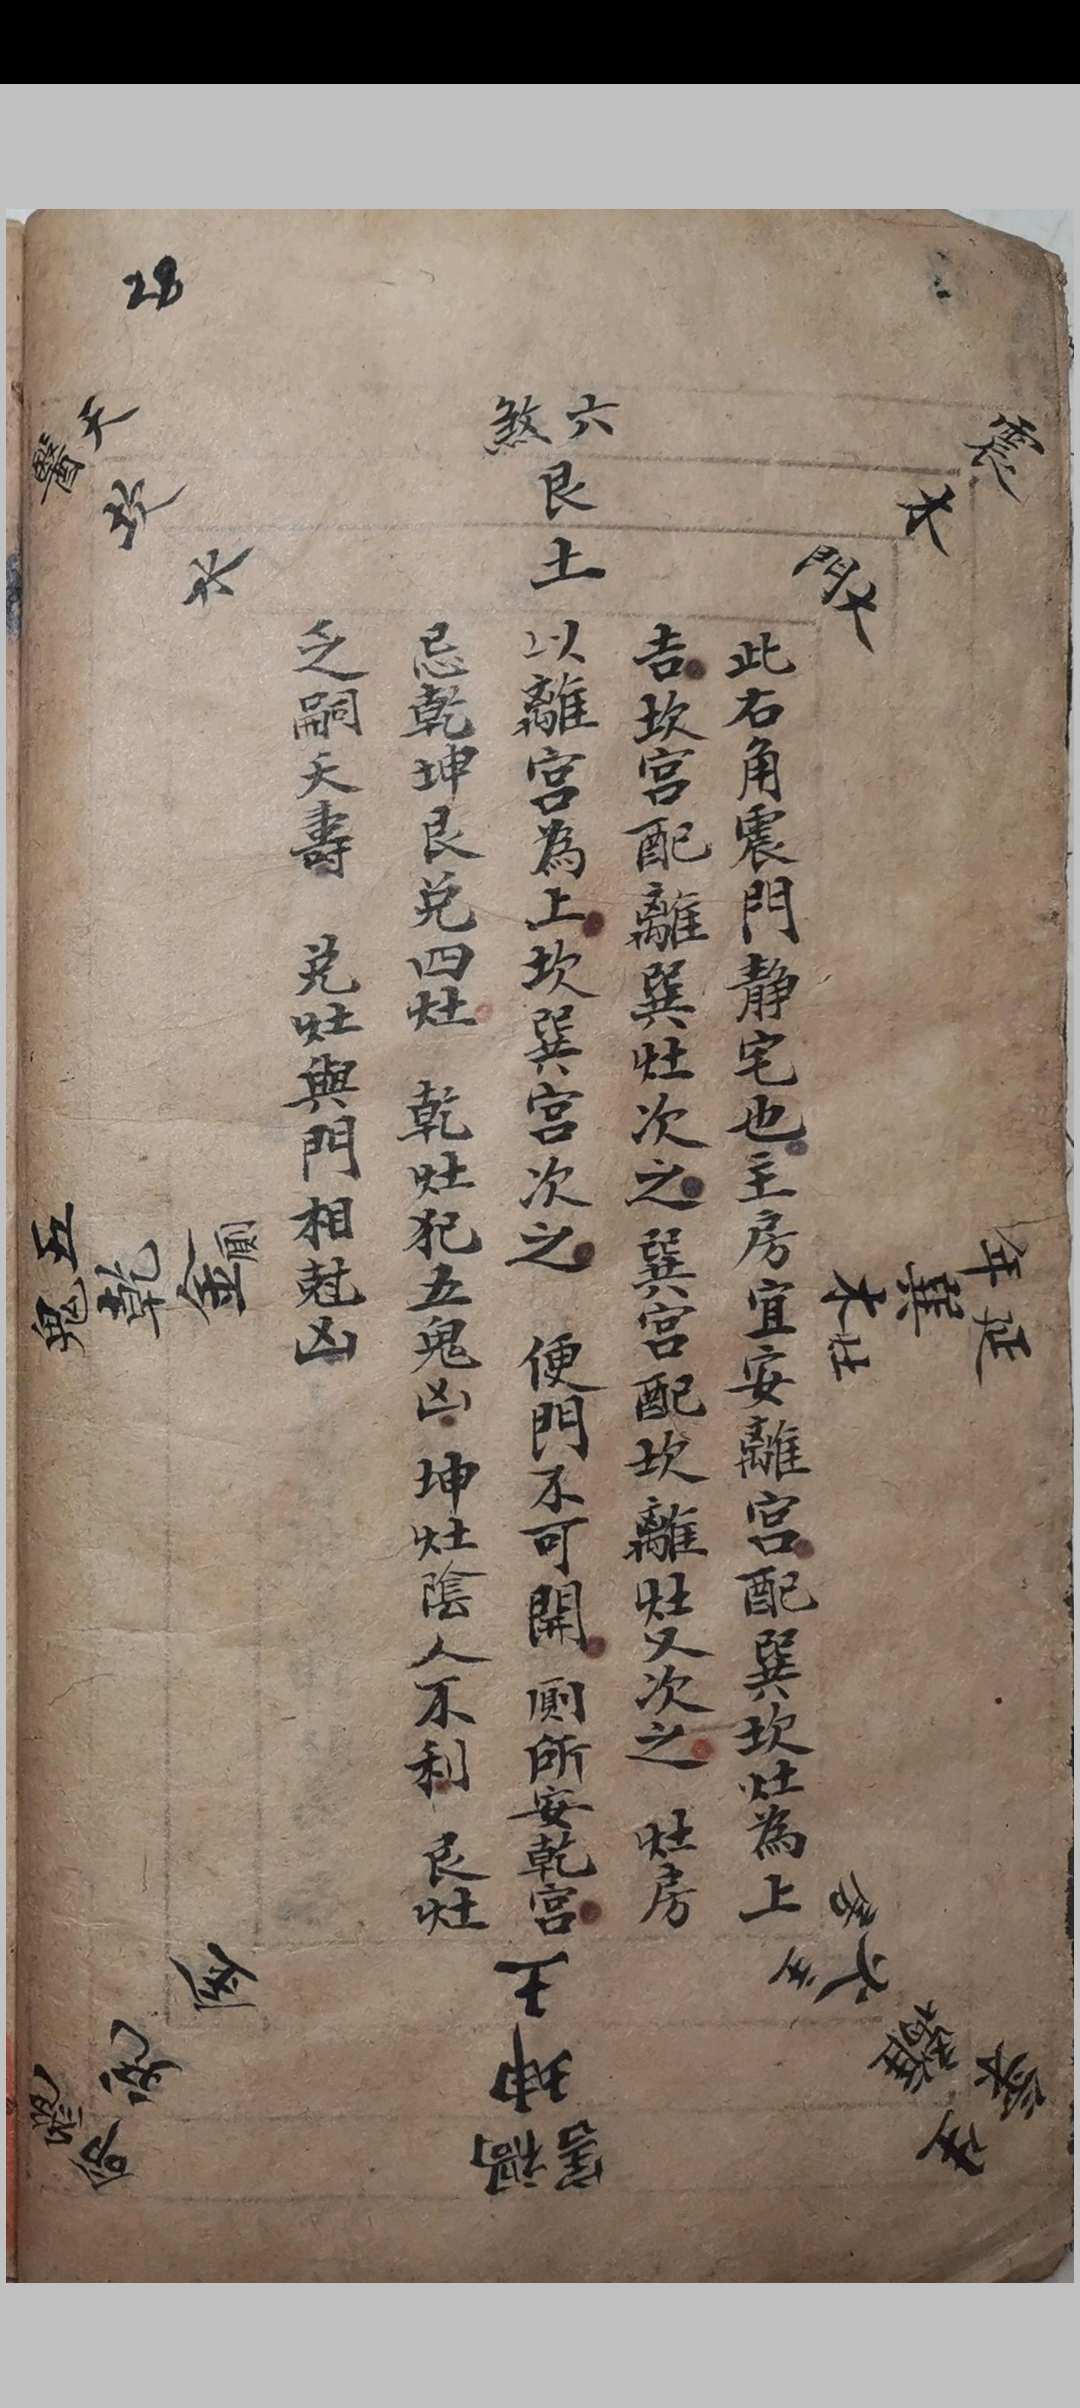 28
六煞
艮
土
震
木
大門
此右角震門静宅也主房宜安離宮配巽坎灶為上
吉坎宮配離巽灶次之巽宮配坎離灶又次之　灶房
以離宮為上坎巽宮次之　便門不可開　厠所安乾宮
忌乾坤艮兌四灶　乾灶犯五鬼凶　坤灶陰人不利　艮灶
乏嗣夭壽　兌灶與門相尅凶
延年
巽
木
灶
生氣
離
火
主房
禍害
坤
土
絕命
兌
金
五鬼
乾
金
厠
天醫
坎
水